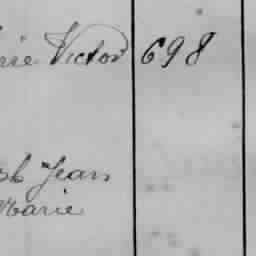 Victor 698
Jean
Marie